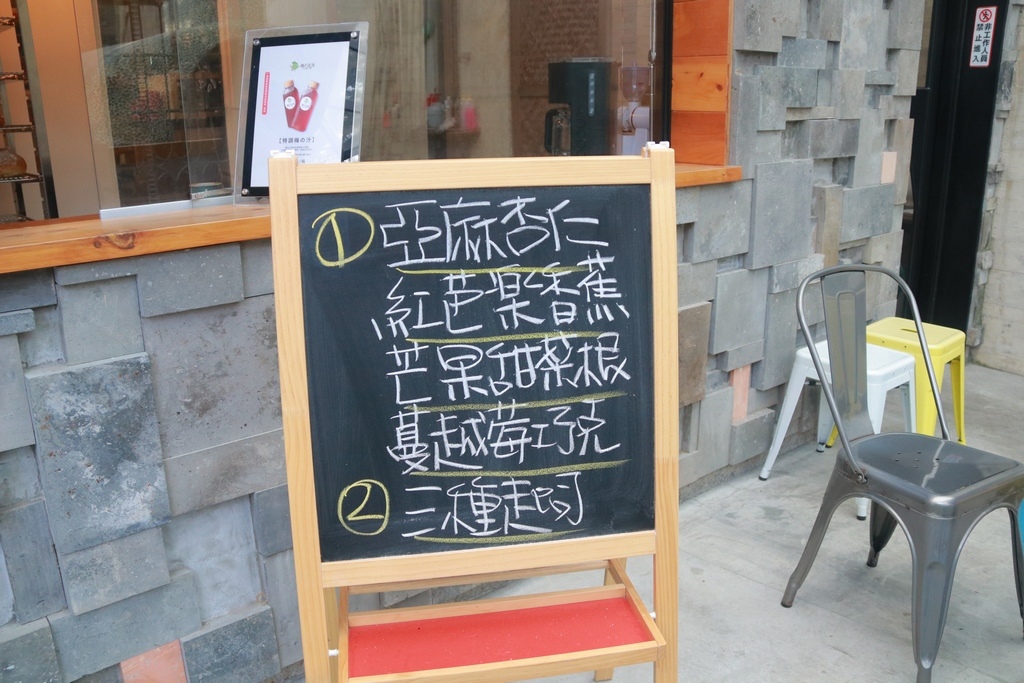 【特調線の汁】
① 亞麻杏仁
紅芭樂香蕉
芒果甜菜根
蔓越莓巧克
② 三種起司
非工作人員
禁止進入